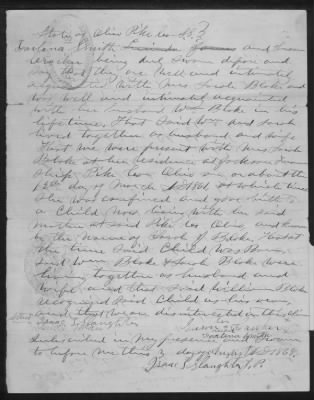 State of Ohio Pike Co SS
Smith and
being duly sworn depose and
say that they are well and intimately
acquainted with Mrs Sarah Bloke and
was well and intimately acquainted
with her husband Wm Bloke in his
lifetime, That said Wm and Sarah
lived together as husband and wife
That we were present with Mrs Sarah
Bloke at her residence at Jackson Town
ship Pike Co Ohio on or about the
day of March 1861 at which time
she was confined and gave birth to
a Child now living with her said
mother at said Pike Co Ohio and known
by the name of Sarah Bloke, that at
the time said Child was Born
said Wm Bloke & Sarah Bloke were
living together as husband and
wife and that said William Bloke
recognized said Child as his own
and that we are disinterested in this
Attest
Isaac S Slaughter
Smith
Subscribed in my presence and sworn
to before me this 3 day 1868
Isaac S Slaughter J.P.